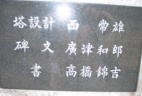 塔設計 西 常雄
碑文 廣津和郎
書 高橋錦吉